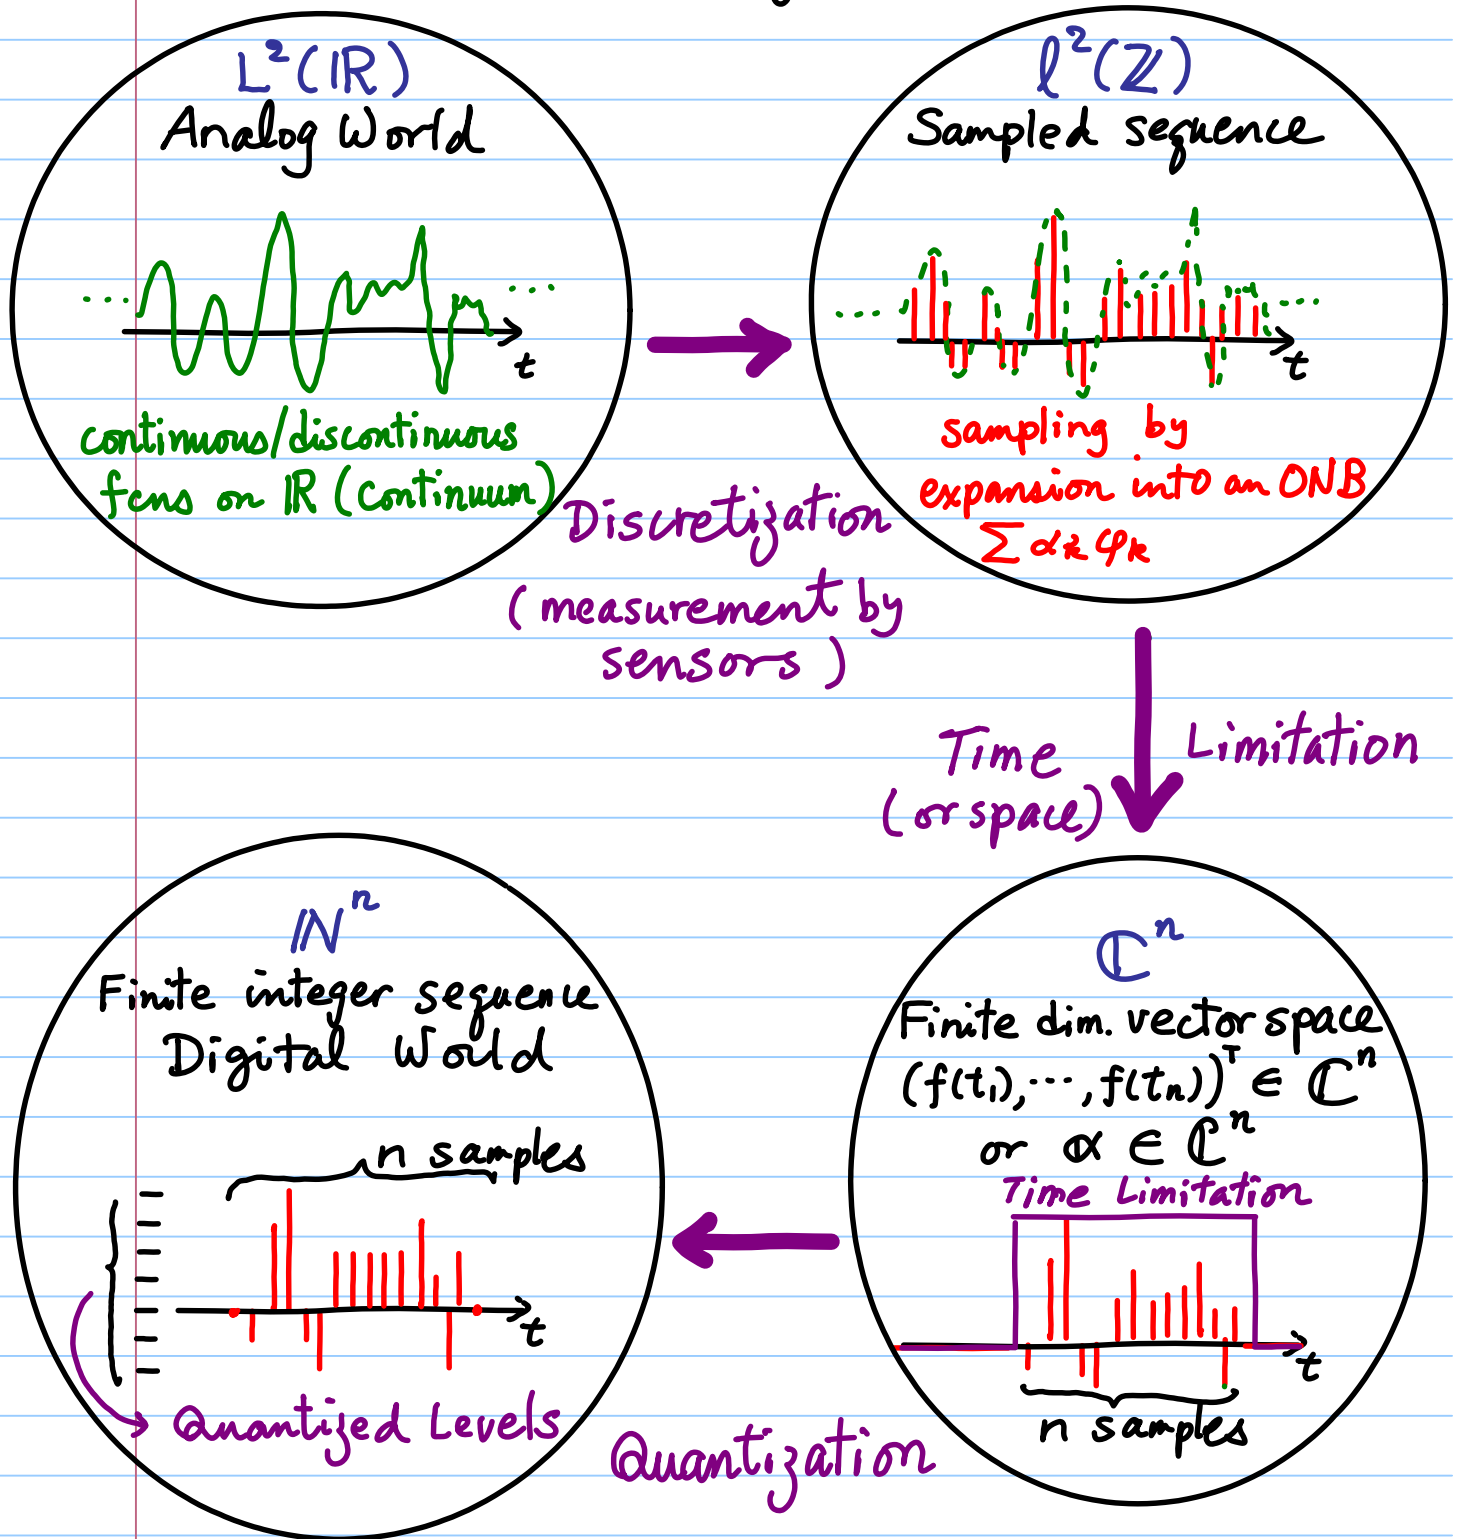 L²(ℝ)
Analog World
t
continuous/discontinuous
fcns on ℝ (continuum)
Discretization
(measurement by
sensors)
ℓ²(ℤ)
Sampled sequence
t
sampling by
expansion into an ONB
Σ αₖ φₖ
Time Limitation
(or space)
ℂⁿ
Finite dim. vector space
(f(t₁), ⋯, f(tₙ))ᵀ ∈ ℂⁿ
or α ∈ ℂⁿ
Time Limitation
t
n samples
Quantization
ℕⁿ
Finite integer sequence
Digital World
n samples
t
Quantized Levels